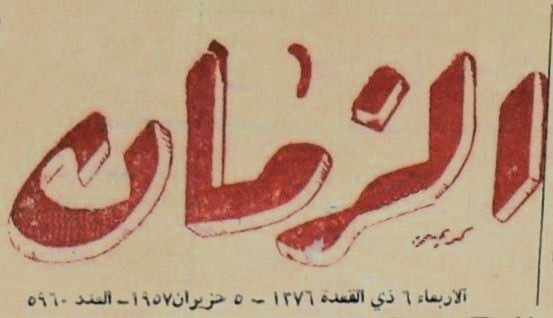 الزمان
الاربعاء ٦ ذي القعدة ١٣٧٦ – ٥ حزيران ١٩٥٧ – العدد ٥٩٦٠